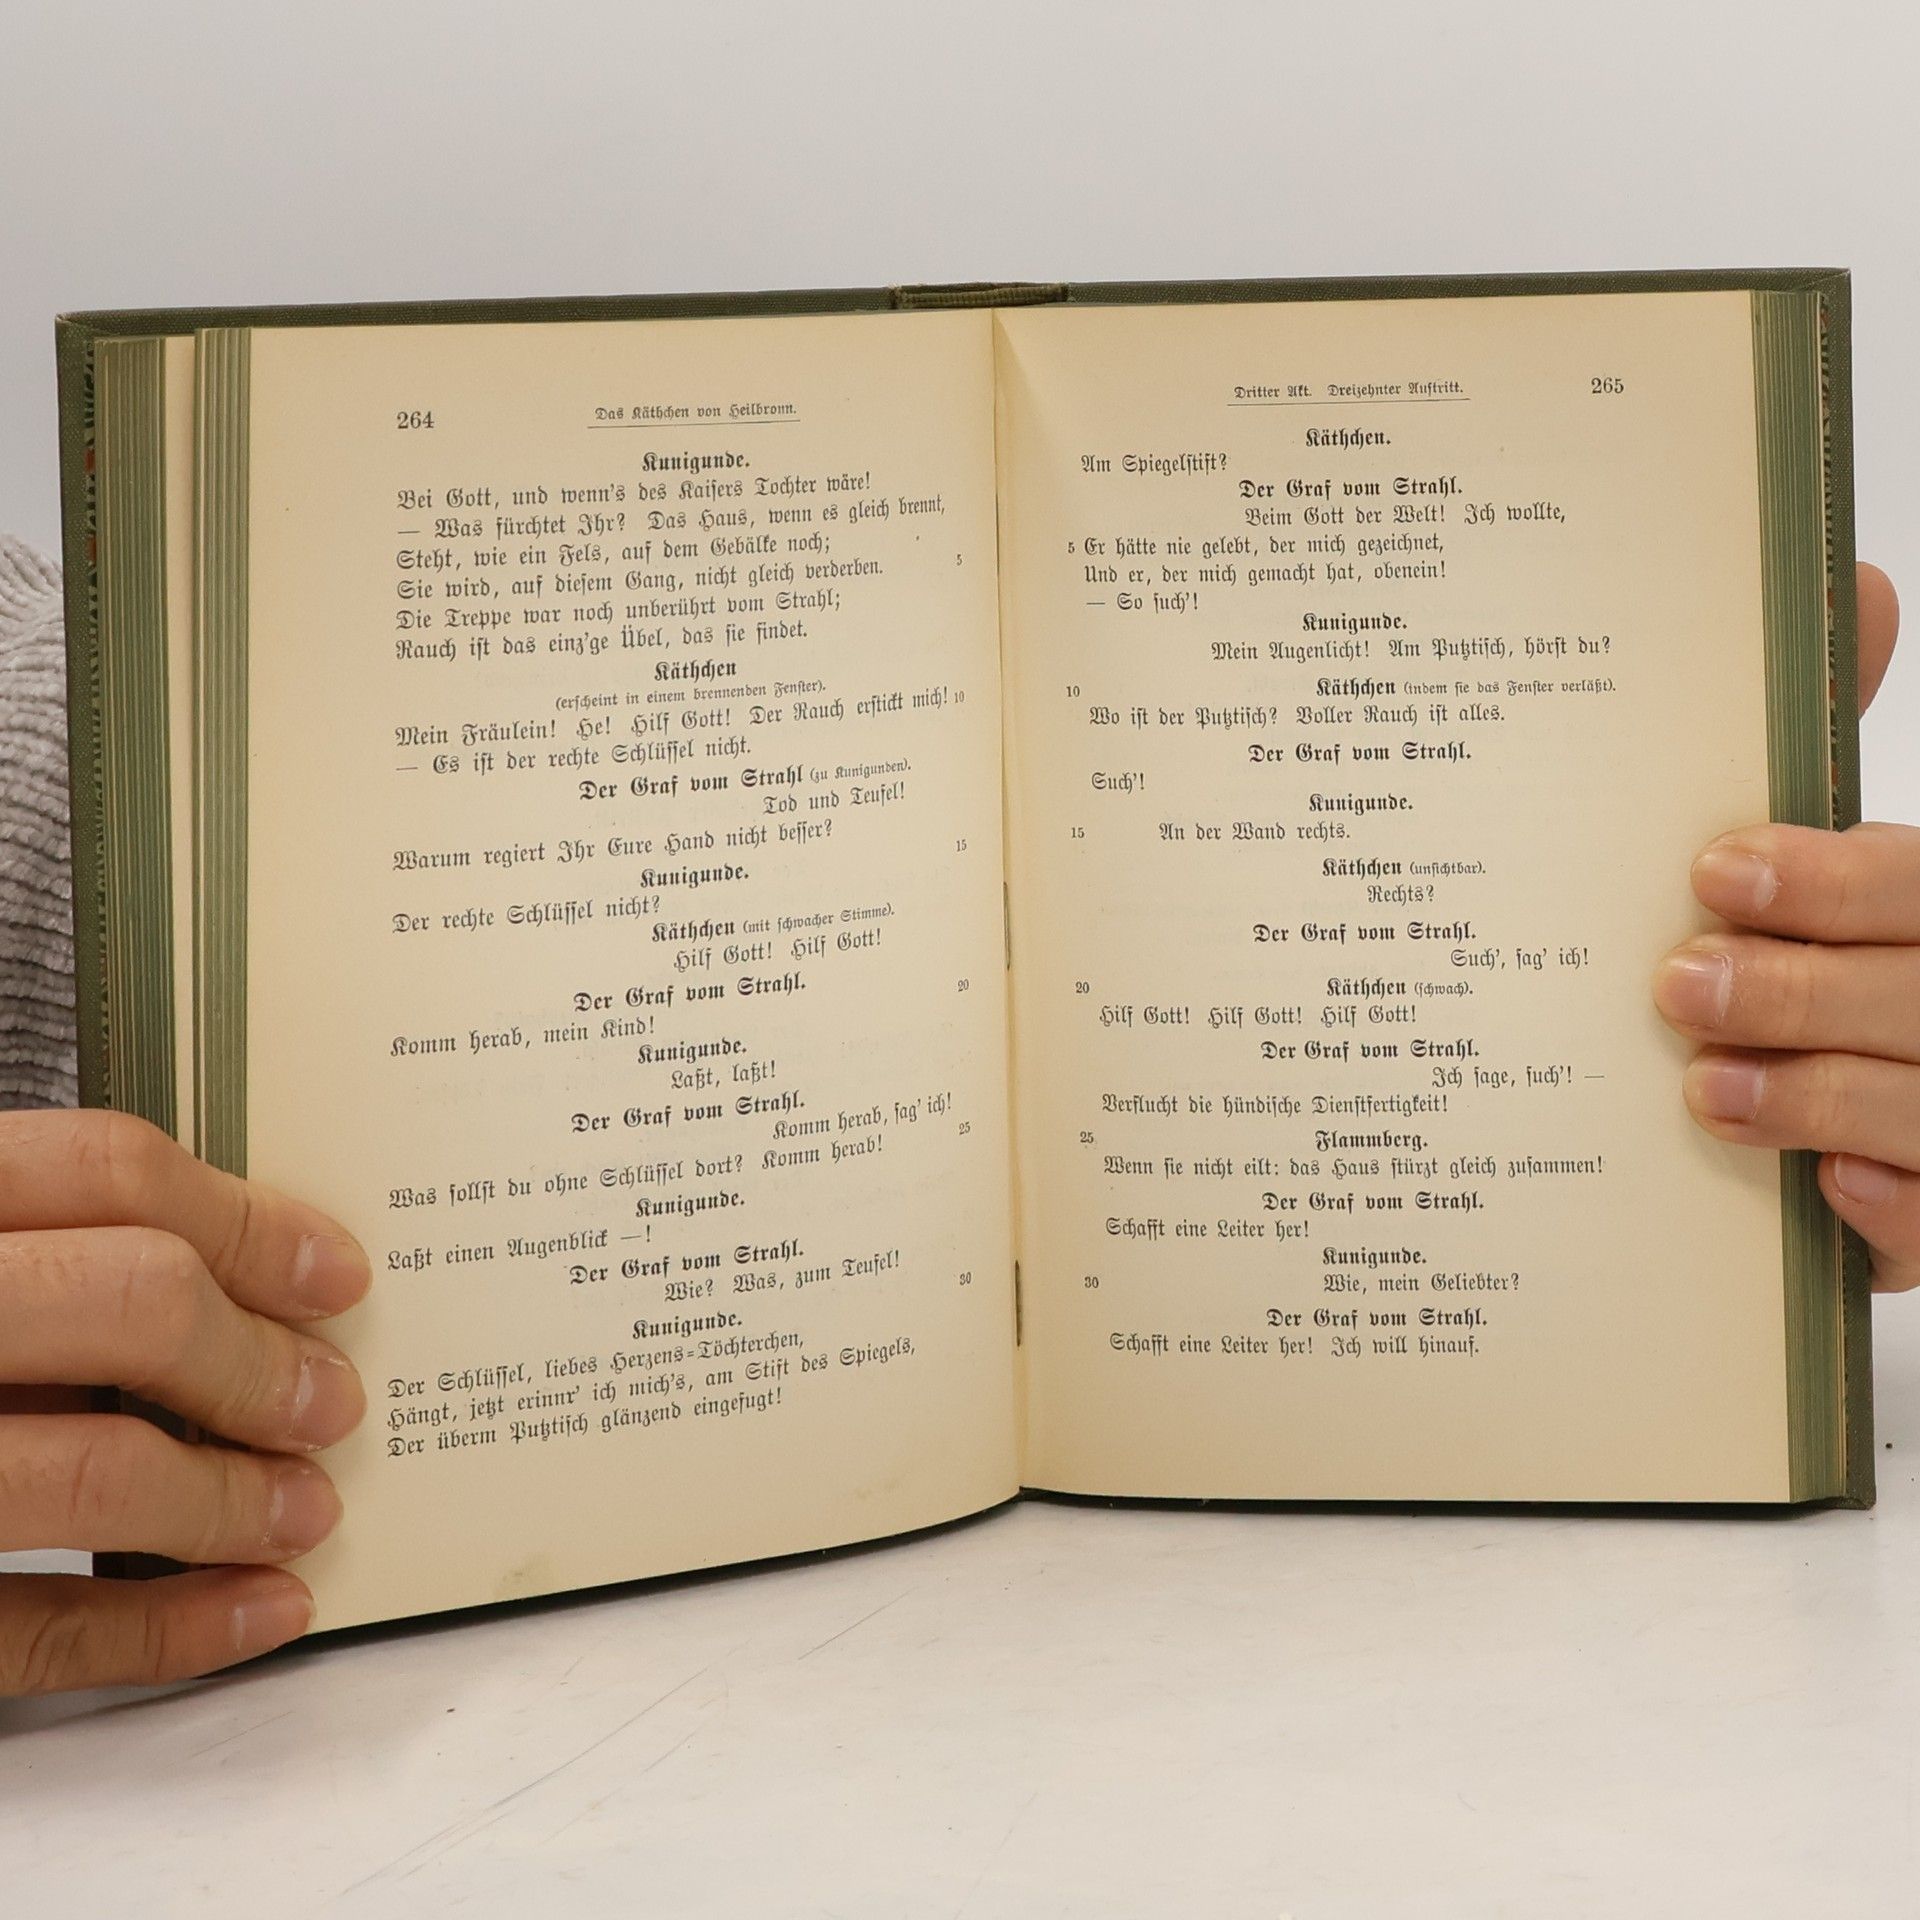 264
Das Käthchen von Heilbronn.
Kunigunde.
Bei Gott, und wenn's des Kaisers Tochter wäre!
— Was fürchtet Ihr? Das Haus, wenn es gleich brennt,
Steht, wie ein Fels, auf dem Gebälke noch;
Sie wird, auf diesem Gang, nicht gleich verderben. 5
Die Treppe war noch unberührt vom Strahl;
Rauch ist das einz'ge Übel, das sie findet.
Käthchen
(erscheint in einem brennenden Fenster).
Mein Fräulein! He! Hilf Gott! Der Rauch erstickt mich! 10
— Es ist der rechte Schlüssel nicht.
Der Graf vom Strahl (zu Kunigunden).
Tod und Teufel!
Warum regiert Ihr Eure Hand nicht besser? 15
Kunigunde.
Der rechte Schlüssel nicht?
Käthchen (mit schwacher Stimme).
Hilf Gott! Hilf Gott!
Der Graf vom Strahl. 20
Komm herab, mein Kind!
Kunigunde.
Laßt, laßt!
Der Graf vom Strahl.
Komm herab, sag' ich!
Was sollst du ohne Schlüssel dort? Komm herab! 25
Kunigunde.
Laßt einen Augenblick —!
Der Graf vom Strahl.
Wie? Was, zum Teufel!
Kunigunde. 30
Der Schlüssel, liebes Herzens-Töchterchen,
Hängt, jetzt erinnr' ich mich's, am Stift des Spiegels,
Der überm Putztisch glänzend eingefugt!
Dritter Akt. Dreizehnter Auftritt.
265
Käthchen.
Am Spiegelstift?
Der Graf vom Strahl.
Beim Gott der Welt! Ich wollte,
5 Er hätte nie gelebt, der mich gezeichnet,
Und er, der mich gemacht hat, obenein!
— So such'!
Kunigunde.
Mein Augenlicht! Am Putztisch, hörst du?
10 Käthchen (indem sie das Fenster verläßt).
Wo ist der Putztisch? Voller Rauch ist alles.
Der Graf vom Strahl.
Such'!
Kunigunde.
15 An der Wand rechts.
Käthchen (unsichtbar).
Rechts?
Der Graf vom Strahl.
Such', sag' ich!
20 Käthchen (schwach).
Hilf Gott! Hilf Gott! Hilf Gott!
Der Graf vom Strahl.
Ich sage, such'! —
Verflucht die hündische Dienstfertigkeit!
25 Flammberg.
Wenn sie nicht eilt: das Haus stürzt gleich zusammen!
Der Graf vom Strahl.
Schafft eine Leiter her!
Kunigunde.
30 Wie, mein Geliebter?
Der Graf vom Strahl.
Schafft eine Leiter her! Ich will hinauf.